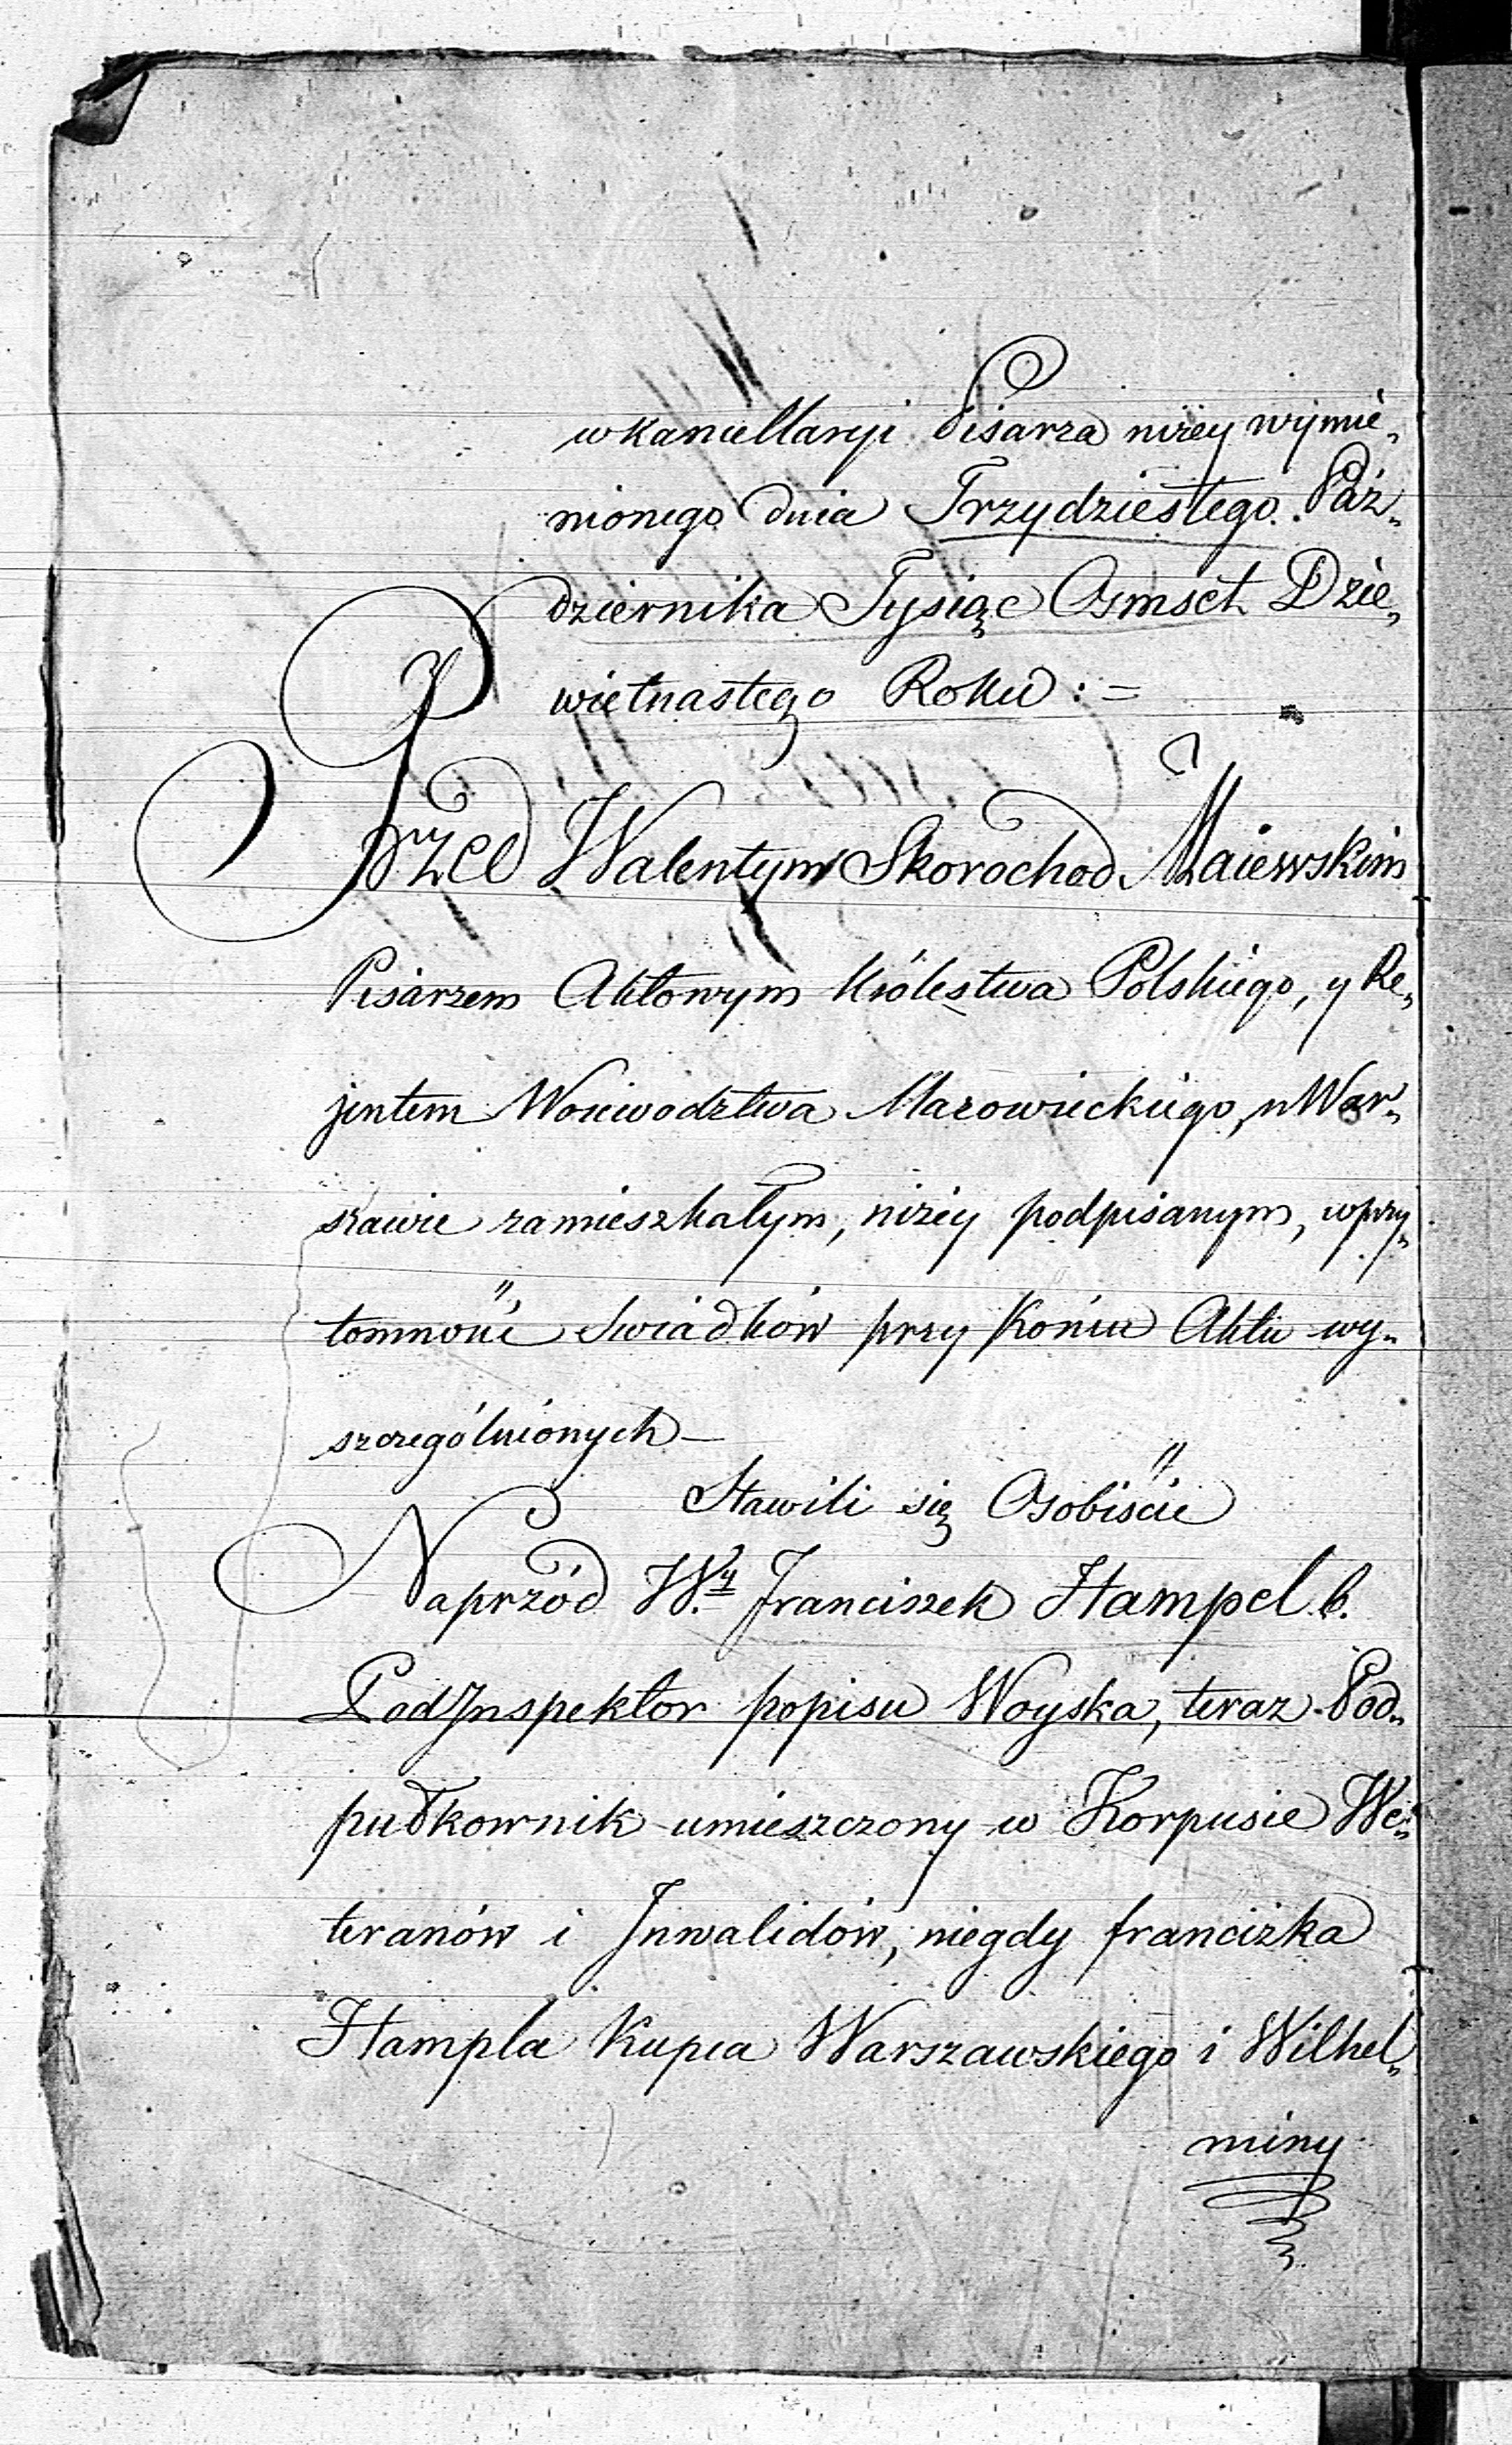 w kancellaryi Pisarza niżey wymie„
nionego dnia Trzydziestego Paź„
dziernika Tysiąc Osmset Dzie„
więtnastego Roku :=
Przed Walentym Skorochod Maiewskim
Pisarzem Aktowym Królestwa Polskiego, y Re„
jentem Woiewodztwa Mazowieckiego, w War„
szawie zamieszkałym, niżey podpisanym, w przy„
tomności Swiadków przy Końcu Aktu wy„
szczególnionych —
Stawili się Osobiście
Naprzód W.ʸ Franciszek Hampel b.
PodJnspektor popisu Woyska, teraz Pod„
pułkownik umieszczony w Korpusie We„
teranów i Jnwalidów, niegdy franciszka
Hampla Kupca Warszawskiego i Wilhel„
miny